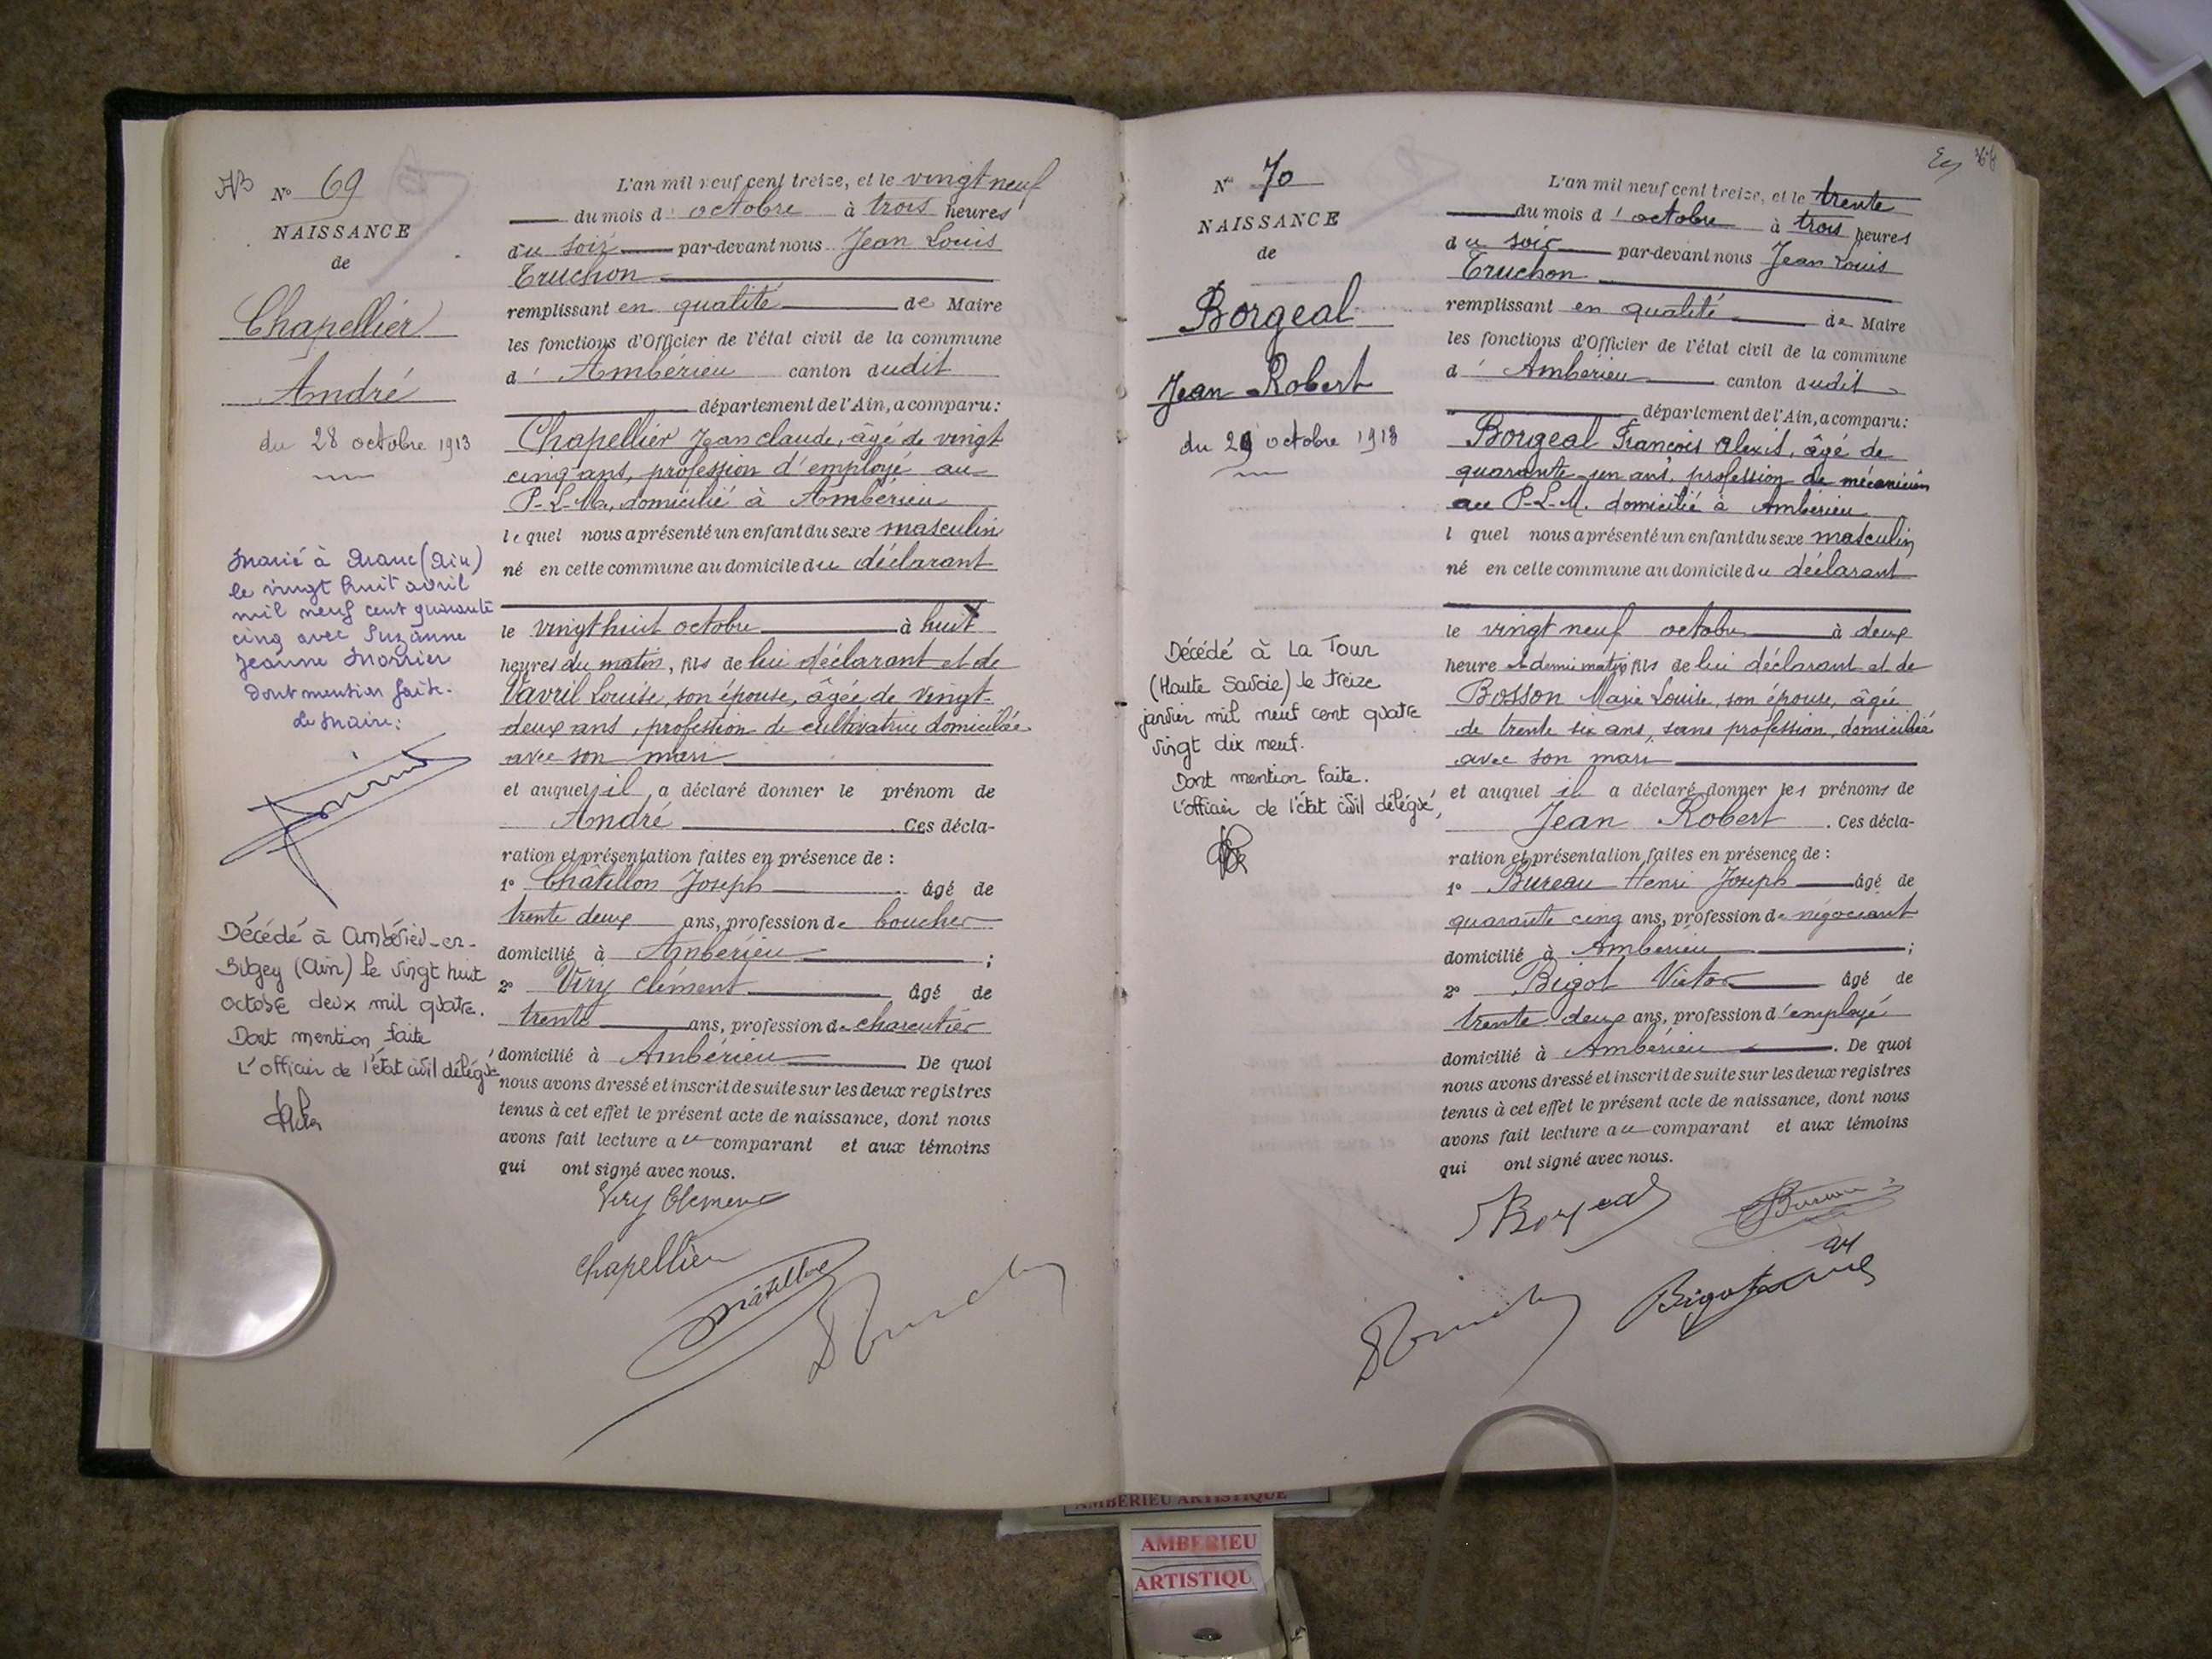 N° 69
NAISSANCE
de
Chapellier
André
du 28 octobre 1913
Marié à Aranc (Ain)
le vingt huit avril
mil neuf cent quarante
cinq avec Suzanne
Jeanne Morrier
Dont mention faite.
Le Maire:
Décédé à Ambérieu-en-
Bugey (Ain) le vingt huit
octobre deux mil quatre.
Dont mention faite
L'officier de l'état civil délégué
L'an mil neuf cent treize, et le vingt neuf
du mois d' octobre à trois heures
du soir par-devant nous Jean Louis
Truchon
remplissant en qualité de Maire
les fonctions d'Officier de l'état civil de la commune
d' Ambérieu canton dudit
département de l'Ain, a comparu:
Chapellier Jean claude, âgé de vingt
cinq ans, profession d'employé au
P-L-M., domicilié à Ambérieu
lequel nous a présenté un enfant du sexe masculin
né en cette commune au domicile du déclarant
le vingt huit octobre à huit
heures du matin, fils de lui déclarant et de
Vavril Louise, son épouse, âgée de vingt-
deux ans, profession de cultivatrice domiciliée
avec son mari
et auquel il a déclaré donner le prénom de
André . Ces décla-
ration et présentation faites en présence de :
1° Châtillon Joseph âgé de
trente deux ans, profession de boucher
domicilié à Ambérieu ;
2° Viry Clément âgé de
trente ans, profession de charcutier
domicilié à Ambérieu De quoi
nous avons dressé et inscrit de suite sur les deux registres
tenus à cet effet le présent acte de naissance, dont nous
avons fait lecture au comparant et aux témoins
qui ont signé avec nous.
Viry Clement
Chapellier
Châtillon
N° 70
NAISSANCE
de
Borgeal
Jean Robert
du 29 octobre 1913
Décédé à La Tour
(Haute Savoie) le treize
janvier mil neuf cent quatre
vingt dix neuf.
Dont mention faite.
L'officier de l'état civil délégué,
L'an mil neuf cent treize, et le trente
du mois d' octobre à trois heures
du soir par-devant nous Jean Louis
Truchon
remplissant en qualité de Maire
les fonctions d'Officier de l'état civil de la commune
d' Ambérieu canton dudit
département de l'Ain, a comparu:
Borgeal François Alexis, âgé de
quarante un ans, profession de mécanicien
au P-L-M. domicilié à Ambérieu
l quel nous a présenté un enfant du sexe masculin
né en cette commune au domicile du déclarant
le vingt neuf octobre à deux
heure et demi matin, fils de lui déclarant et de
Bosson Marie Louise, son épouse, âgée
de trente six ans, sans profession, domiciliée
avec son mari
et auquel il a déclaré donner les prénoms de
Jean Robert . Ces décla-
ration et présentation faites en présence de :
1° Bureau Henri Joseph âgé de
quarante cinq ans, profession de négociant
domicilié à Ambérieu ;
2° Bigot Victor âgé de
trente deux ans, profession d'employé
domicilié à Ambérieu . De quoi
nous avons dressé et inscrit de suite sur les deux registres
tenus à cet effet le présent acte de naissance, dont nous
avons fait lecture au comparant et aux témoins
qui ont signé avec nous.
Borgeal
Bureau
Bigot
AMBERIEU ARTISTIQUE
AMBERIEU
ARTISTIQU